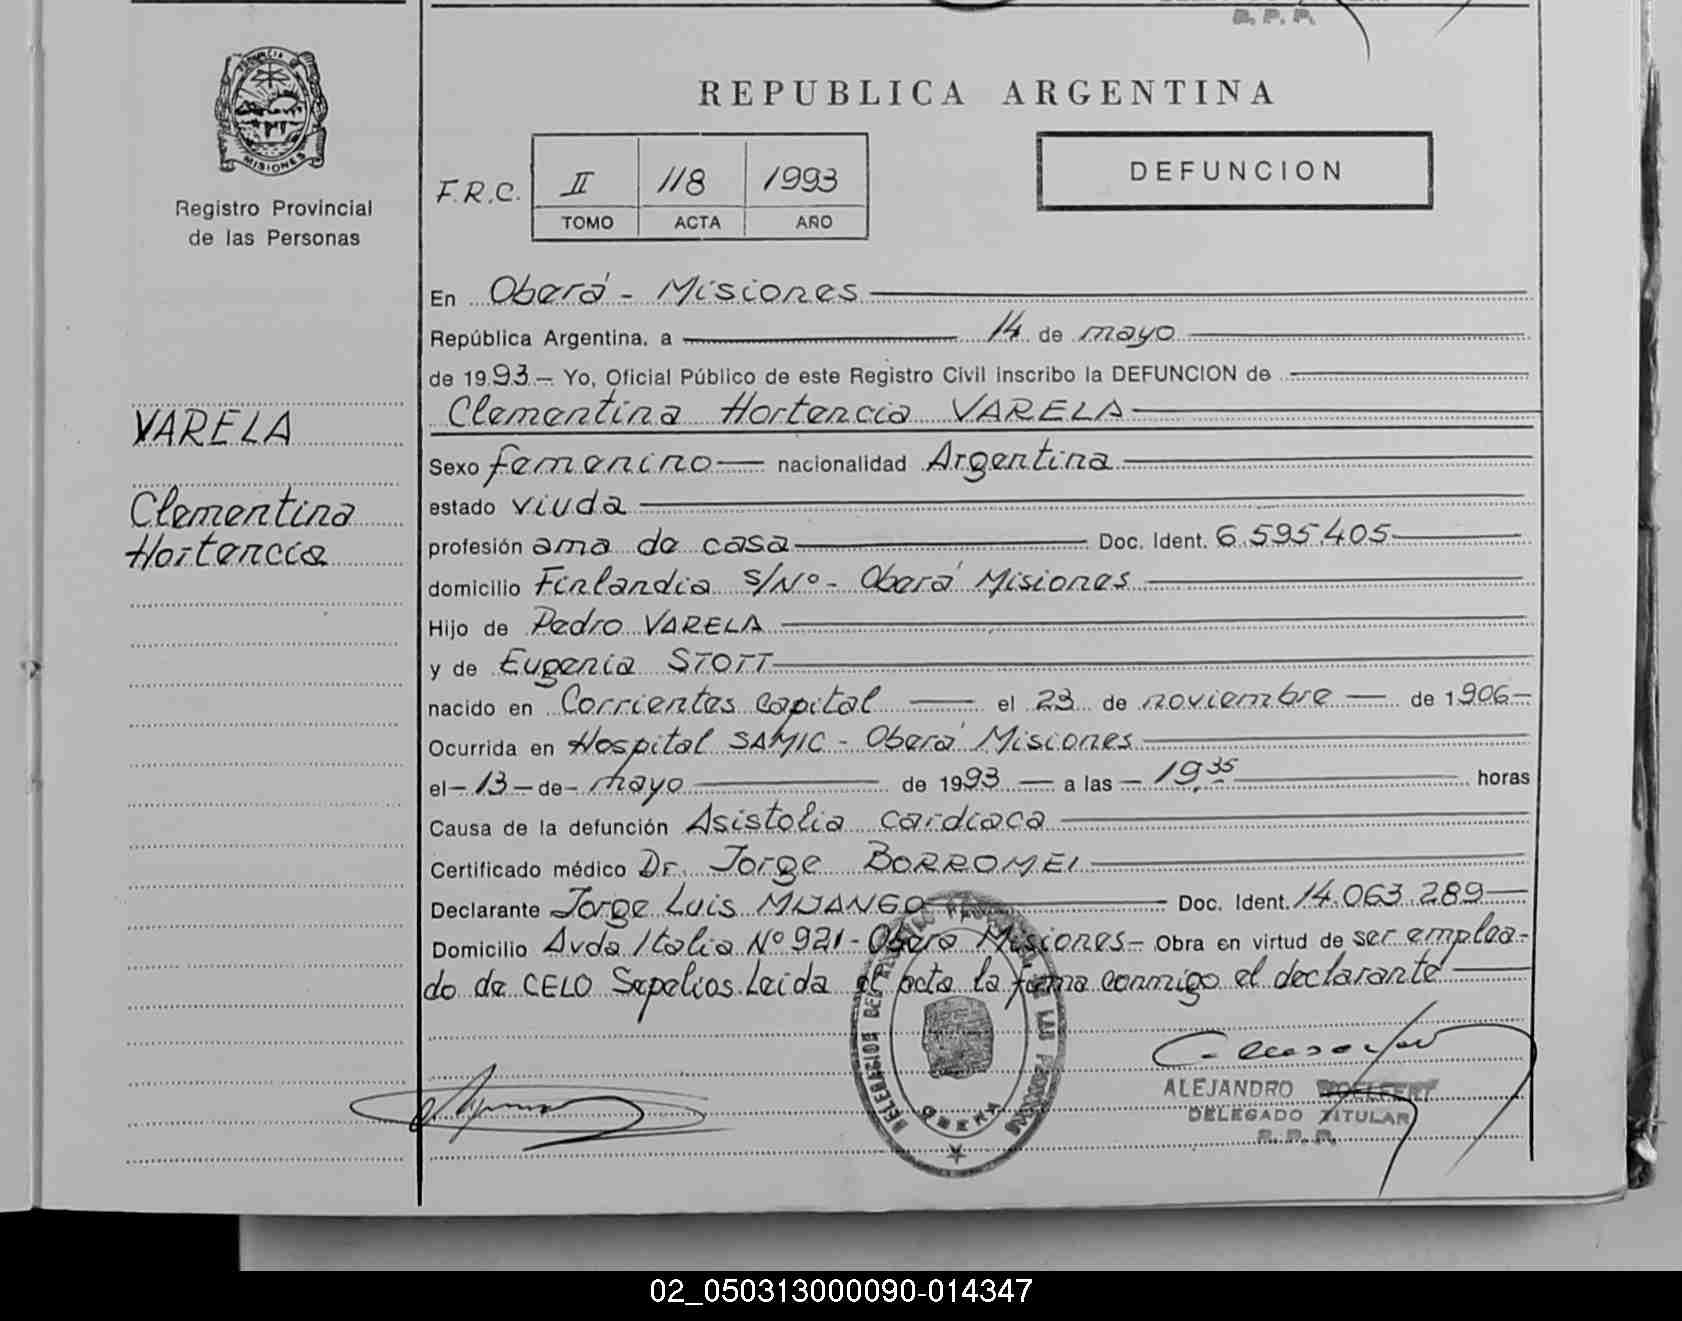 R. P. P.
MISIONES
Registro Provincial
de las Personas
VARELA
Clementina
Hortencia
REPUBLICA ARGENTINA
F.R.C. II 118 1993
TOMO ACTA AÑO
DEFUNCION
En Oberá - Misiones
República Argentina, a 14 de mayo
de 1993 - Yo, Oficial Público de este Registro Civil inscribo la DEFUNCION de
Clementina Hortencia VARELA
Sexo femenino nacionalidad Argentina
estado viuda
profesión ama de casa Doc. Ident. 6.595.405
domicilio Finlandia S/Nº - Oberá Misiones
Hijo de Pedro VARELA
y de Eugenia STOTT
nacido en Corrientes capital el 23 de noviembre de 1906
Ocurrida en Hospital SAMIC - Oberá Misiones
el 13 de mayo de 1993 a las 19,35 horas
Causa de la defunción Asistolia cardiaca
Certificado médico Dr. Jorge BORROMEI
Declarante Jorge Luis MIJANGO Doc. Ident. 14.063.289
Domicilio Avda Italia Nº 921 - Oberá Misiones - Obra en virtud de ser emplea-
do de CELO Sepelios. Leida el acta la firma conmigo el declarante
OBERA
ALEJANDRO
DELEGADO TITULAR
R. P. P.
02_050313000090-014347